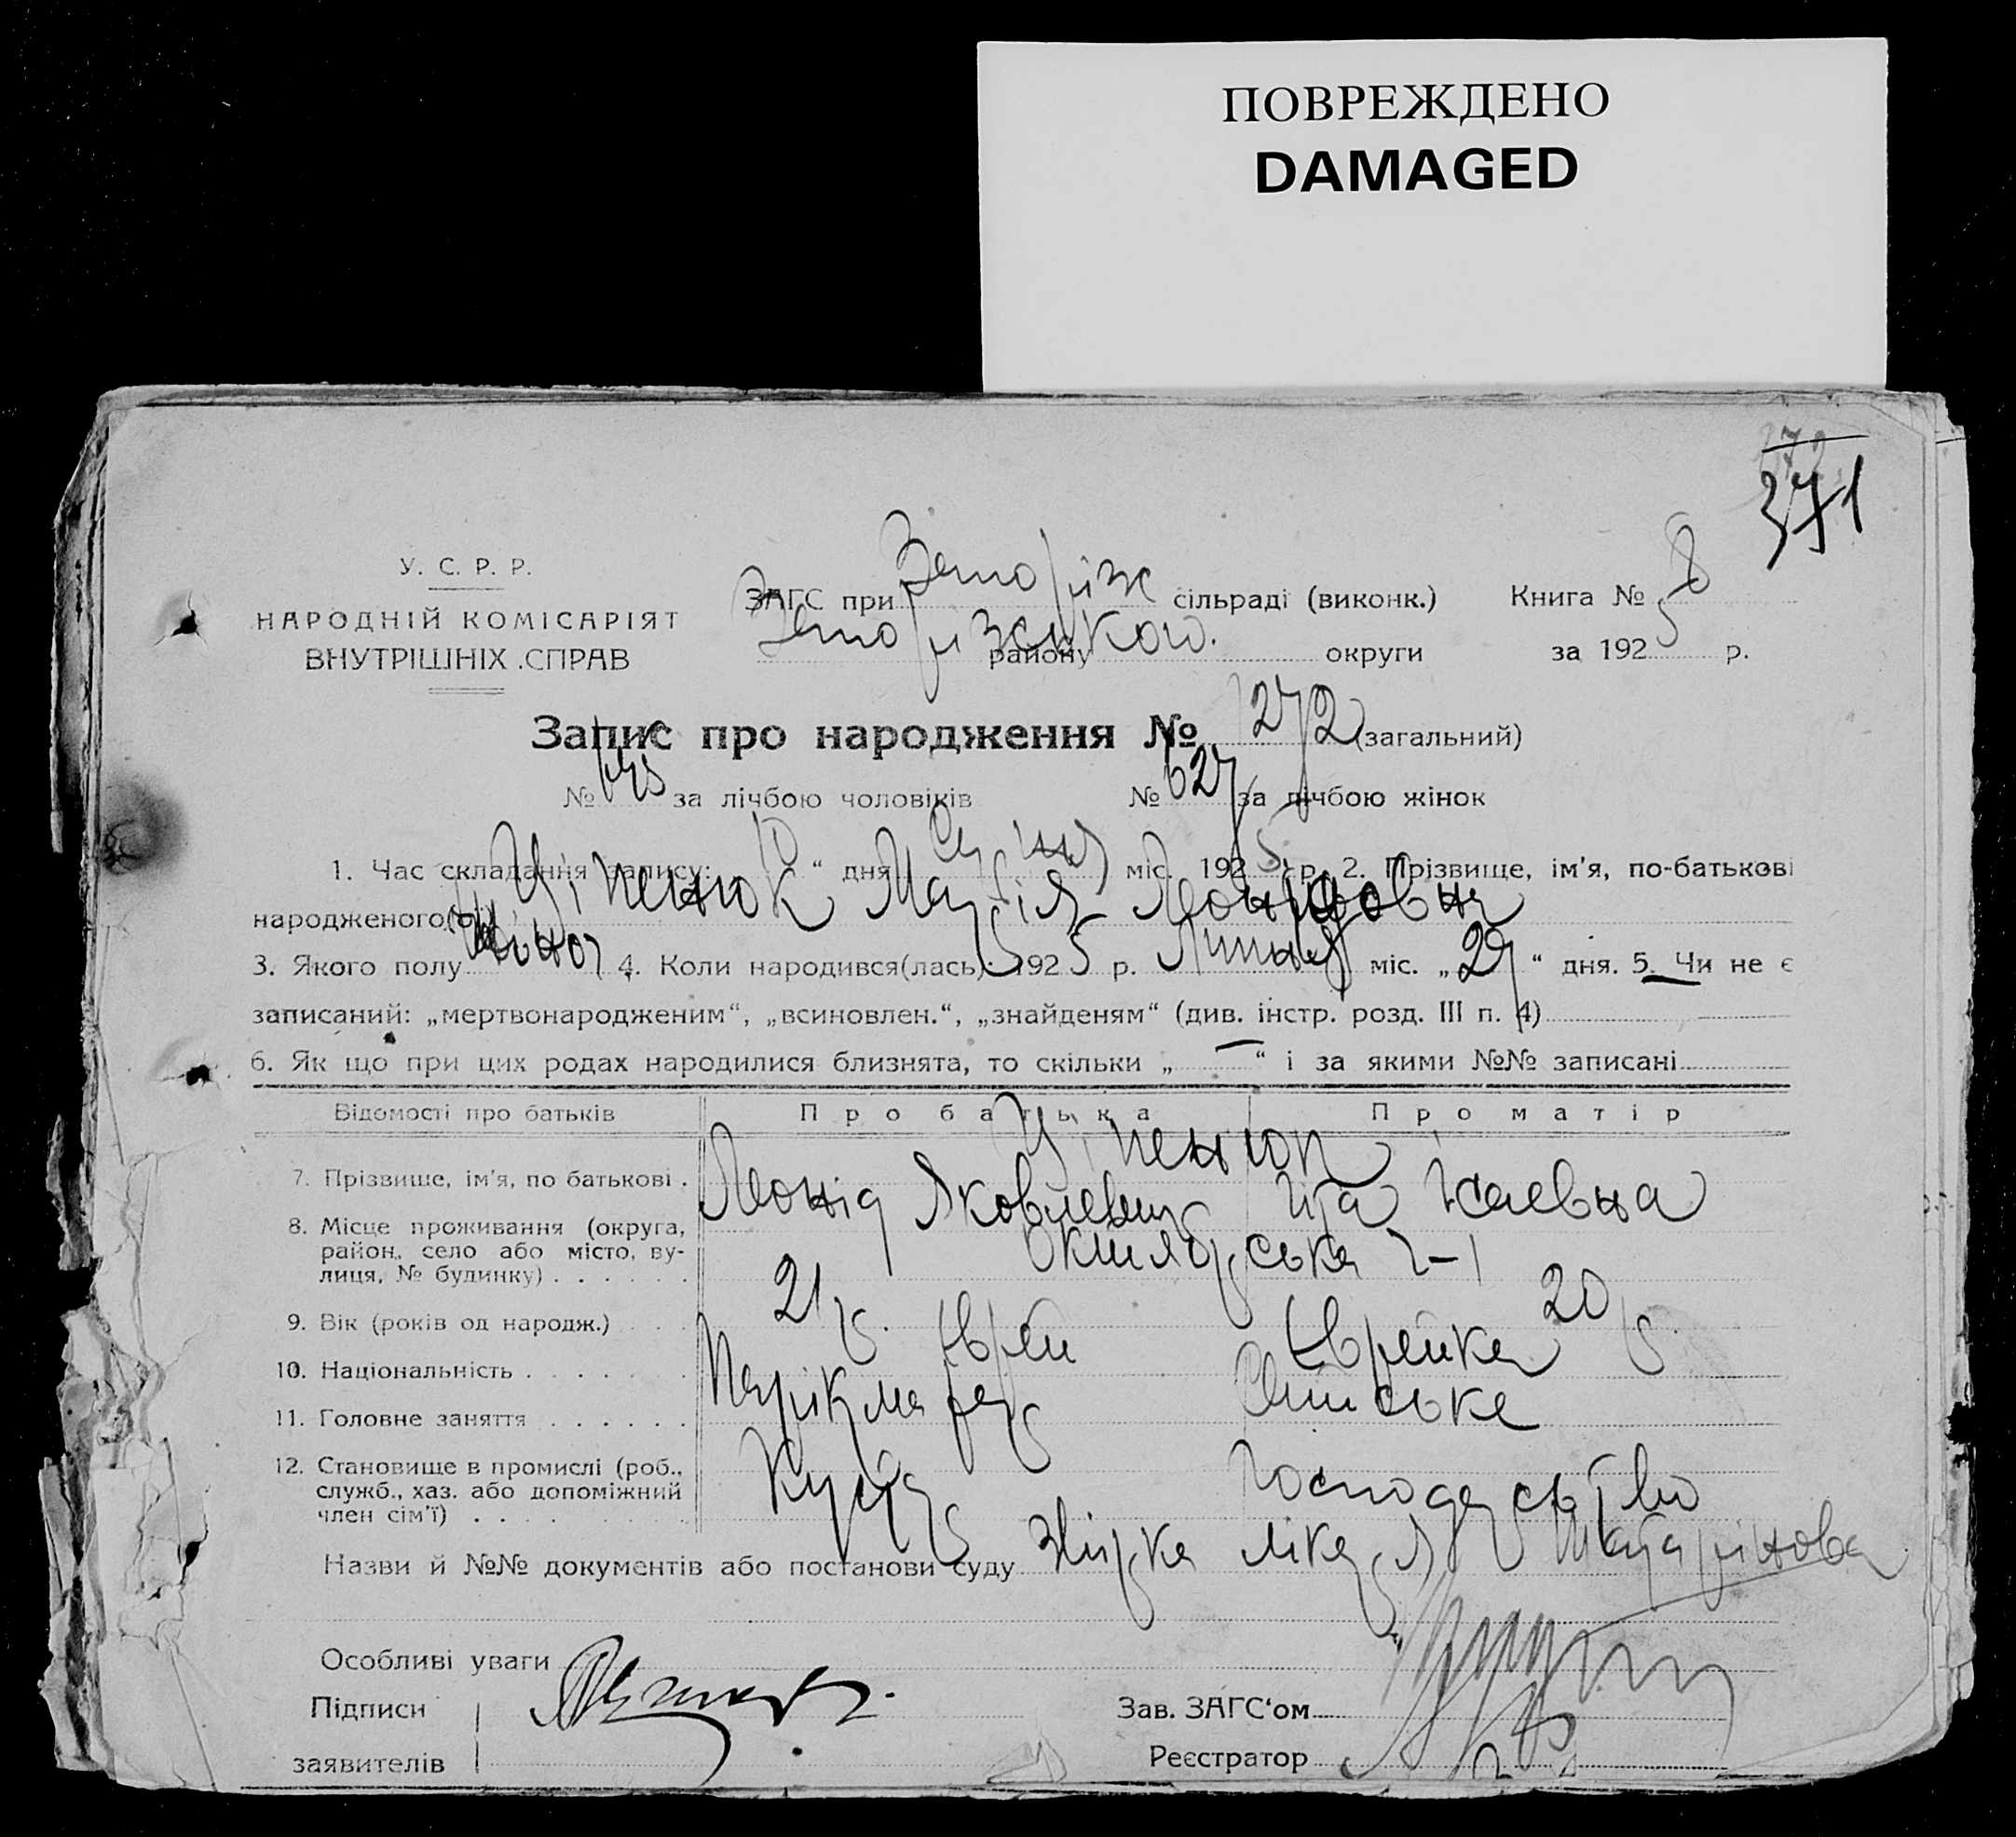 ПОВРЕЖДЕНО
DAMAGED
371
У. С. Р. Р.
НАРОДНІЙ КОМІСАРІЯТ
ВНУТРІШНІХ СПРАВ
ЗАГС при Запоріж сільраді (виконк.) Книга № 8
району округи за 1925 р.
Запис про народження № 1272 (загальний)
№ 645 за лічбою чоловіків № 627 за лічбою жінок
1. Час складання запису: 10 “ дня Серпня міс. 1925 р. 2. Прізвище, ім'я, по-батькові
народженого(ої) Ціпенюк Марія Леонідовна
3. Якого полу жіноч 4. Коли народився(лась): 1925 р. Липня міс. „27“ дня. 5. Чи не є
записаний: „мертвонародженим“, „всиновлен.“, „знайденям“ (див. інстр. розд. III п. 4)
6. Як що при цих родах народилися близнята, то скільки „ — “ і за якими №№ записані
Відомості про батьків Про батька Про матір
Ціпенюк
7. Прізвище, ім'я, по батькові . Леонід Яковлевич Ісаевна
8. Місце проживання (округа,
район, село або місто, ву-
лиця, № будинку) . . . . . .
9. Вік (років од народж.) . . . 21 р. 20 р
10. Національність . . . . . . . Єврей Єврейка
11. Головне заняття . . . . . . Парікмахер Сільське
12. Становище в промислі (роб.,
служб., хаз. або допоміжний
член сім'ї) . . . . Кустар господарство
Назви й №№ документів або постанови суду лікаря
Особливі уваги
Підписи
заявителів
Зав. ЗАГС‘ом
Реєстратор